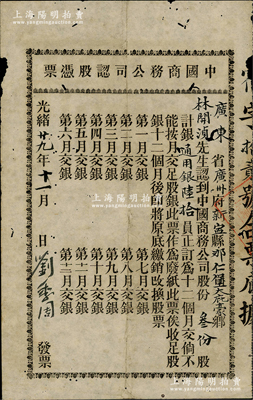 上海陽明拍賣
中國商務公司認股憑票
廣東省廣州府新寧縣那仁堡
林開湞先生認到中國商務公司股份叁份股
計銀通用銀陸拾員正訂為十二個月交倘不
能按月交足股銀此票作為廢紙此票俟收足股
銀十二個月後即將原底繳銷改換股票
第一月交銀 第七月交銀
第二月交銀 第八月交銀
第三月交銀 第九月交銀
第四月交銀 第十月交銀
第五月交銀 第十一月交銀
第六月交銀 第十二月交銀
光緒廿九年十一月 日 發票
上海陽明拍賣